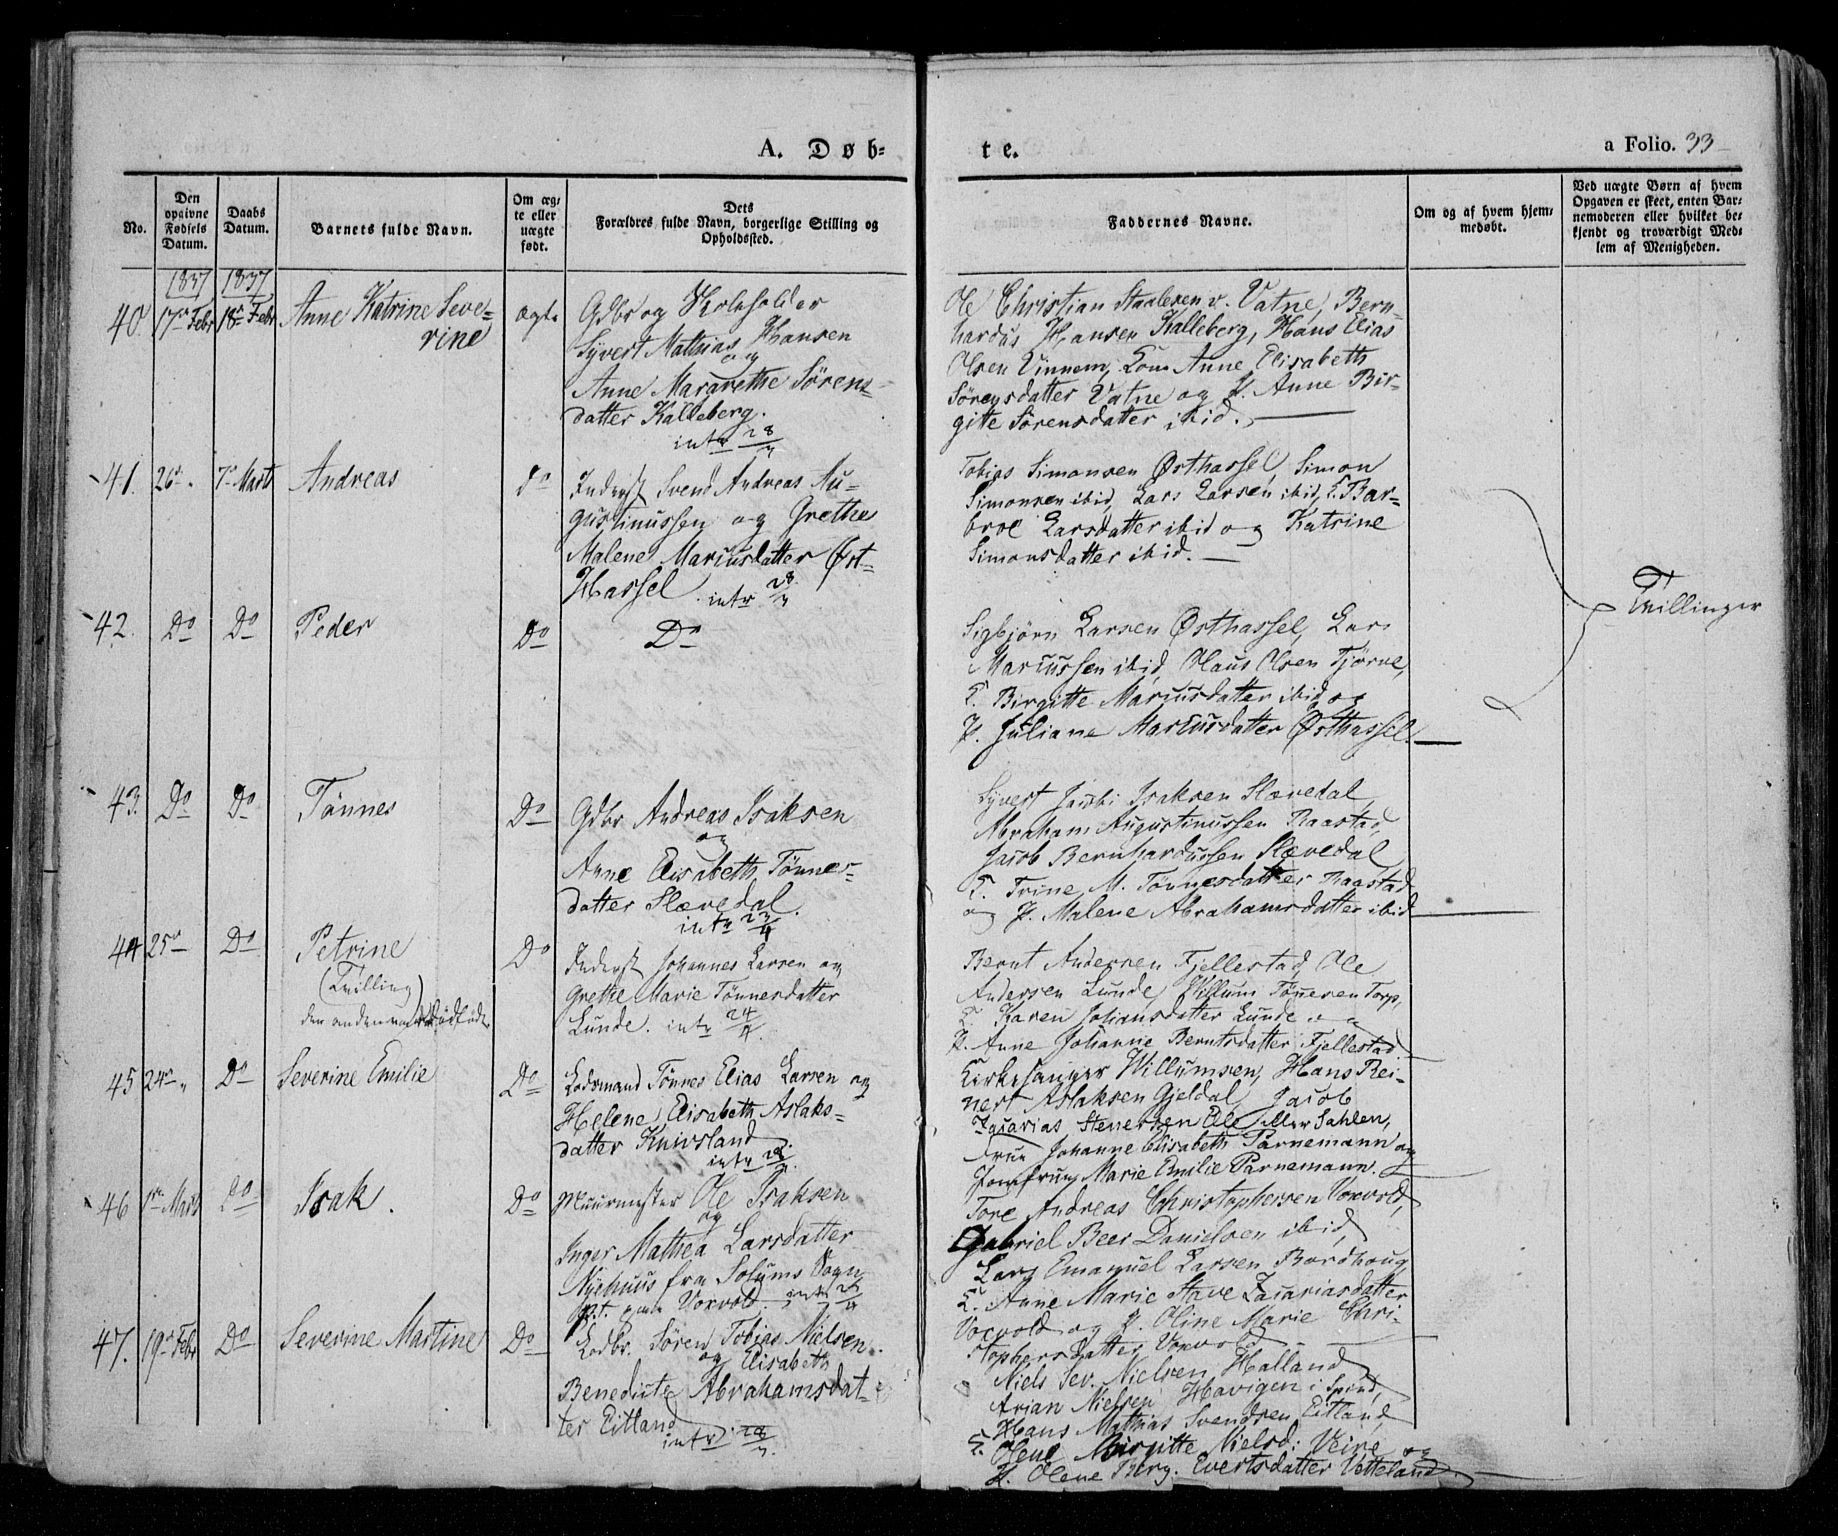 A. Døb-
te.
a Folio. 33
No.
Den
opgivne
Fødsels
Datum.
Daabs
Datum.
Barnets fulde Navn.
Om æg-
te eller
uægte
født.
Dets
Forældres fulde Navn, borgerlige Stilling og
Opholdssted.
Faddernes Navne.
Om og af hvem hjem-
medøbt.
Ved uægte Børn af hvem
Opgaven er skeet, enten Bar-
nemoderen eller hvilket be-
kjendt og troværdigt Med-
lem af Menigheden.
1837 1837
40 17de Febr 18de Febr Anne Katrine Seve-
rine
ægte
Gdbr og
Syvert Mathias Hansen
og
Anne Margrethe Sørens-
datter Kalleberg.
intr 28
Ole Christian Staalesen v. Vatne, Bern-
hardus Hansen Kalleberg, Hans Elias
Olsen Vinnem, Kone Anne Elisabeth
Sørensdatter Vatne og P. Anne Bir-
gitte Sørensdatter ibid.
41. 26de 7de Marts Andreas
do
Inderst Svend Andreas Au-
gustinussen og Grethe
Malene Mariusdatter Øst-
Hassel intr 28
Tobias Simonsen Østhassel, Simon
Simonsen ibid, Lars Larsen ibid, K. Bar-
broe Larsdatter ibid og Katrine
Simonsdatter ibid.
Tvillinger
42. Do Do Peder
Do
Do
Sigbjörn Larsen Østhassel, Lars
Mariussen ibid, Olaus Olsen Tjørve,
K. Birgitte Mariusdatter ibid og
P. Juliane Mariusdatter Østhassel.
43. Do Do Tönnes
Do
Gdbr Andreas Isaksen
og
Anne Elisabeth Tønnes-
datter Slævedal.
intr 23/4
Syvert Jacobi Isaksen Slævedal,
Abraham Augustinussen Raastad,
Jacob Bernhardussen Slævedal
K. Trine M. Tønnesdatter Raastad
og P. Malene Abrahamsdatter ibid
44 25de Do Petrine
(Tvilling)
den anden var dødfødt
Do
Inderst Johannes Larsen og
Grethe Marie Tønnesdatter
Lunde. intr 24/4
Bernt Andersen Fjellestad, Ole
Andersen Lunde, Villum Tönesen Torp,
K. Karen Johansdatter Lunde og
P. Anne Johanne Berntsdatter Fjellestad
45 24de Do Severine Emilie
Do
Lodsmand Tønnes Elias Larsen og
Helene Elisabeth Aslaks-
datter Knivsland
intr
Kirkesanger Willumsen, Hans Rei-
nert Aslaksen Gjeldal, Jacob
Zacarias Stenersen Ele eller Sahlen,
Frue Johanne Elisabeth Parnemann og
Jomfrue Marie Emilie Parnemann.
46 1ste Marts Do Isak.
Do
Muurmester Ole Isaksen
og
Inger Mathea Larsdatter
Nyehuus fra Solums Sogn
p.t. Voxvold. intr
Tore Andreas Christophersen Voxvold,
Gabriel Beer Danielsen ibid,
Lars Emanuel Larsen Bordhoug,
K. Anne Marie Stave Zacariasdatter
Voxvold og P. Oline Marie Chri-
stophersdatter Voxvold
47. 19de Febr Do Severine Martine
Do
Sören Tobias Nielsen
og Elisabeth
Benedicte Abrahamsdat-
ter Eitland
intr 28
Niels Sev. Nielsen Halland
Arian Nielsen Havigen i Spind,
Hans Mathias Svendsen Eitland,
K. Olene Birgitte Nielsd: Veire og
P. Olene Berg. Evertsdatter Vetteland